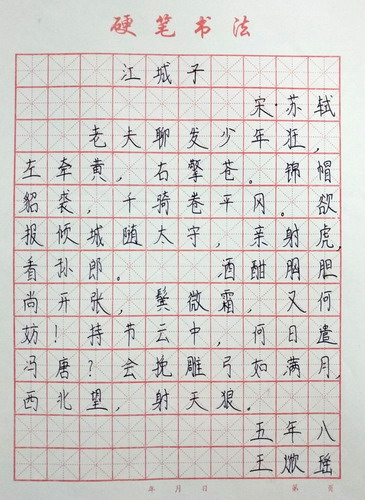 硬笔书法
江城子
宋·苏轼
老夫聊发少年狂，
左牵黄，右擎苍。锦帽
貂裘，千骑卷平冈。欲
报倾城随太守，亲射虎，
看孙郎。酒酣胸胆
尚开张，鬓微霜，又何
妨！持节云中，何日遣
冯唐？会挽雕弓如满月，
西北望，射天狼。
五年八
王焮瑶
年 月 日 第 页